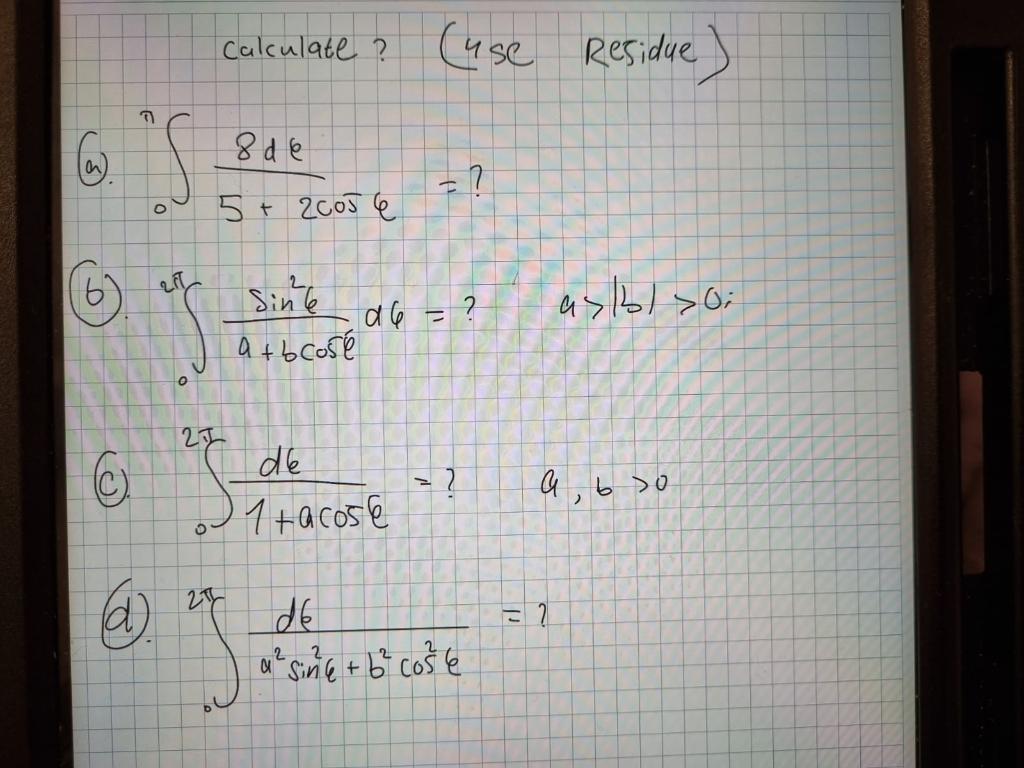 Calculate? (use Residue)
(a). ∫₀^π 8dθ / (5 + 2cosθ) = ?
(b). ∫₀^2π sin²θ / (a+bcosθ) dθ = ? a>|b|>0;
(c). ∫₀^2π dθ / (1+acosθ) = ? a, b >0
(d). ∫₀^2π dθ / (a²sin²θ + b²cos²θ) = ?